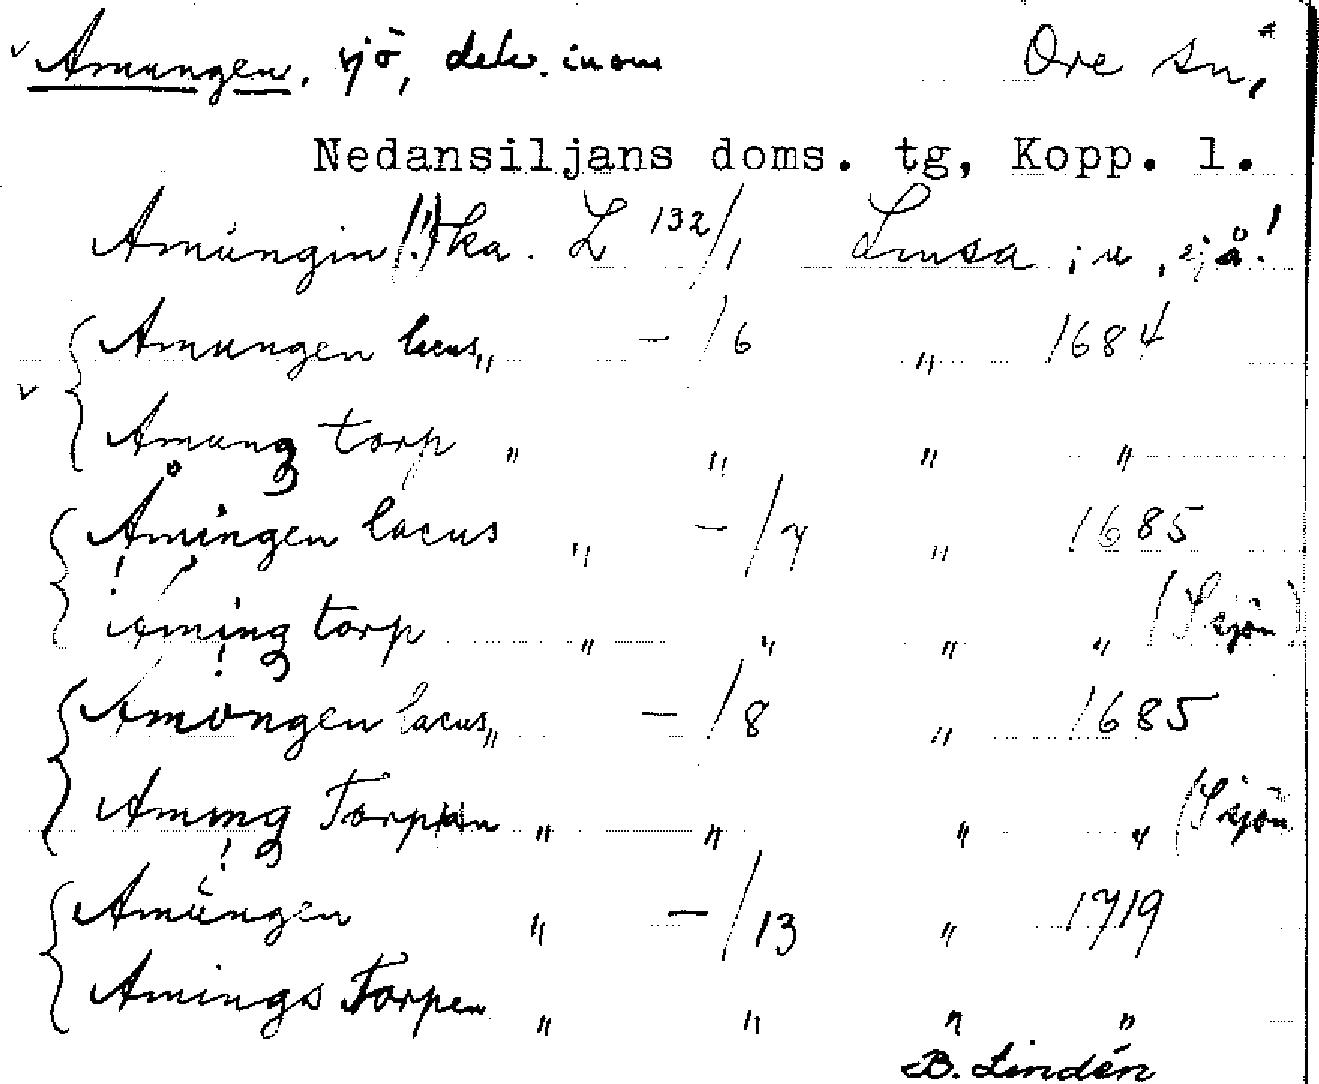 Amungen, sjö, delv. inom Ore sn,
Nedansiljans doms. tg, Kopp. l.
Amŭngin (!) ka. L 132/1 Limsa ; u, ej å!
Amungen lacus „ – /6 „ 1684
Amung torp „ „ „ „
Åmingen lacus „ – /7 „ 1685
Åming torp „ „ „ „ (L sjön)
Amongen lacus „ – /8 „ 1685
Aming Torpen „ „ „ „ (L sjön
Amŭngen „ – /13 „ 1719
Amings Torpen „ „ „ „
B. Lindén